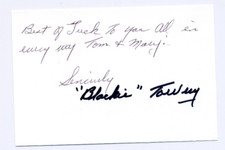 Best of Luck To you All in
every way Tom & Mary.
Sincerely
"Blackie" Towery